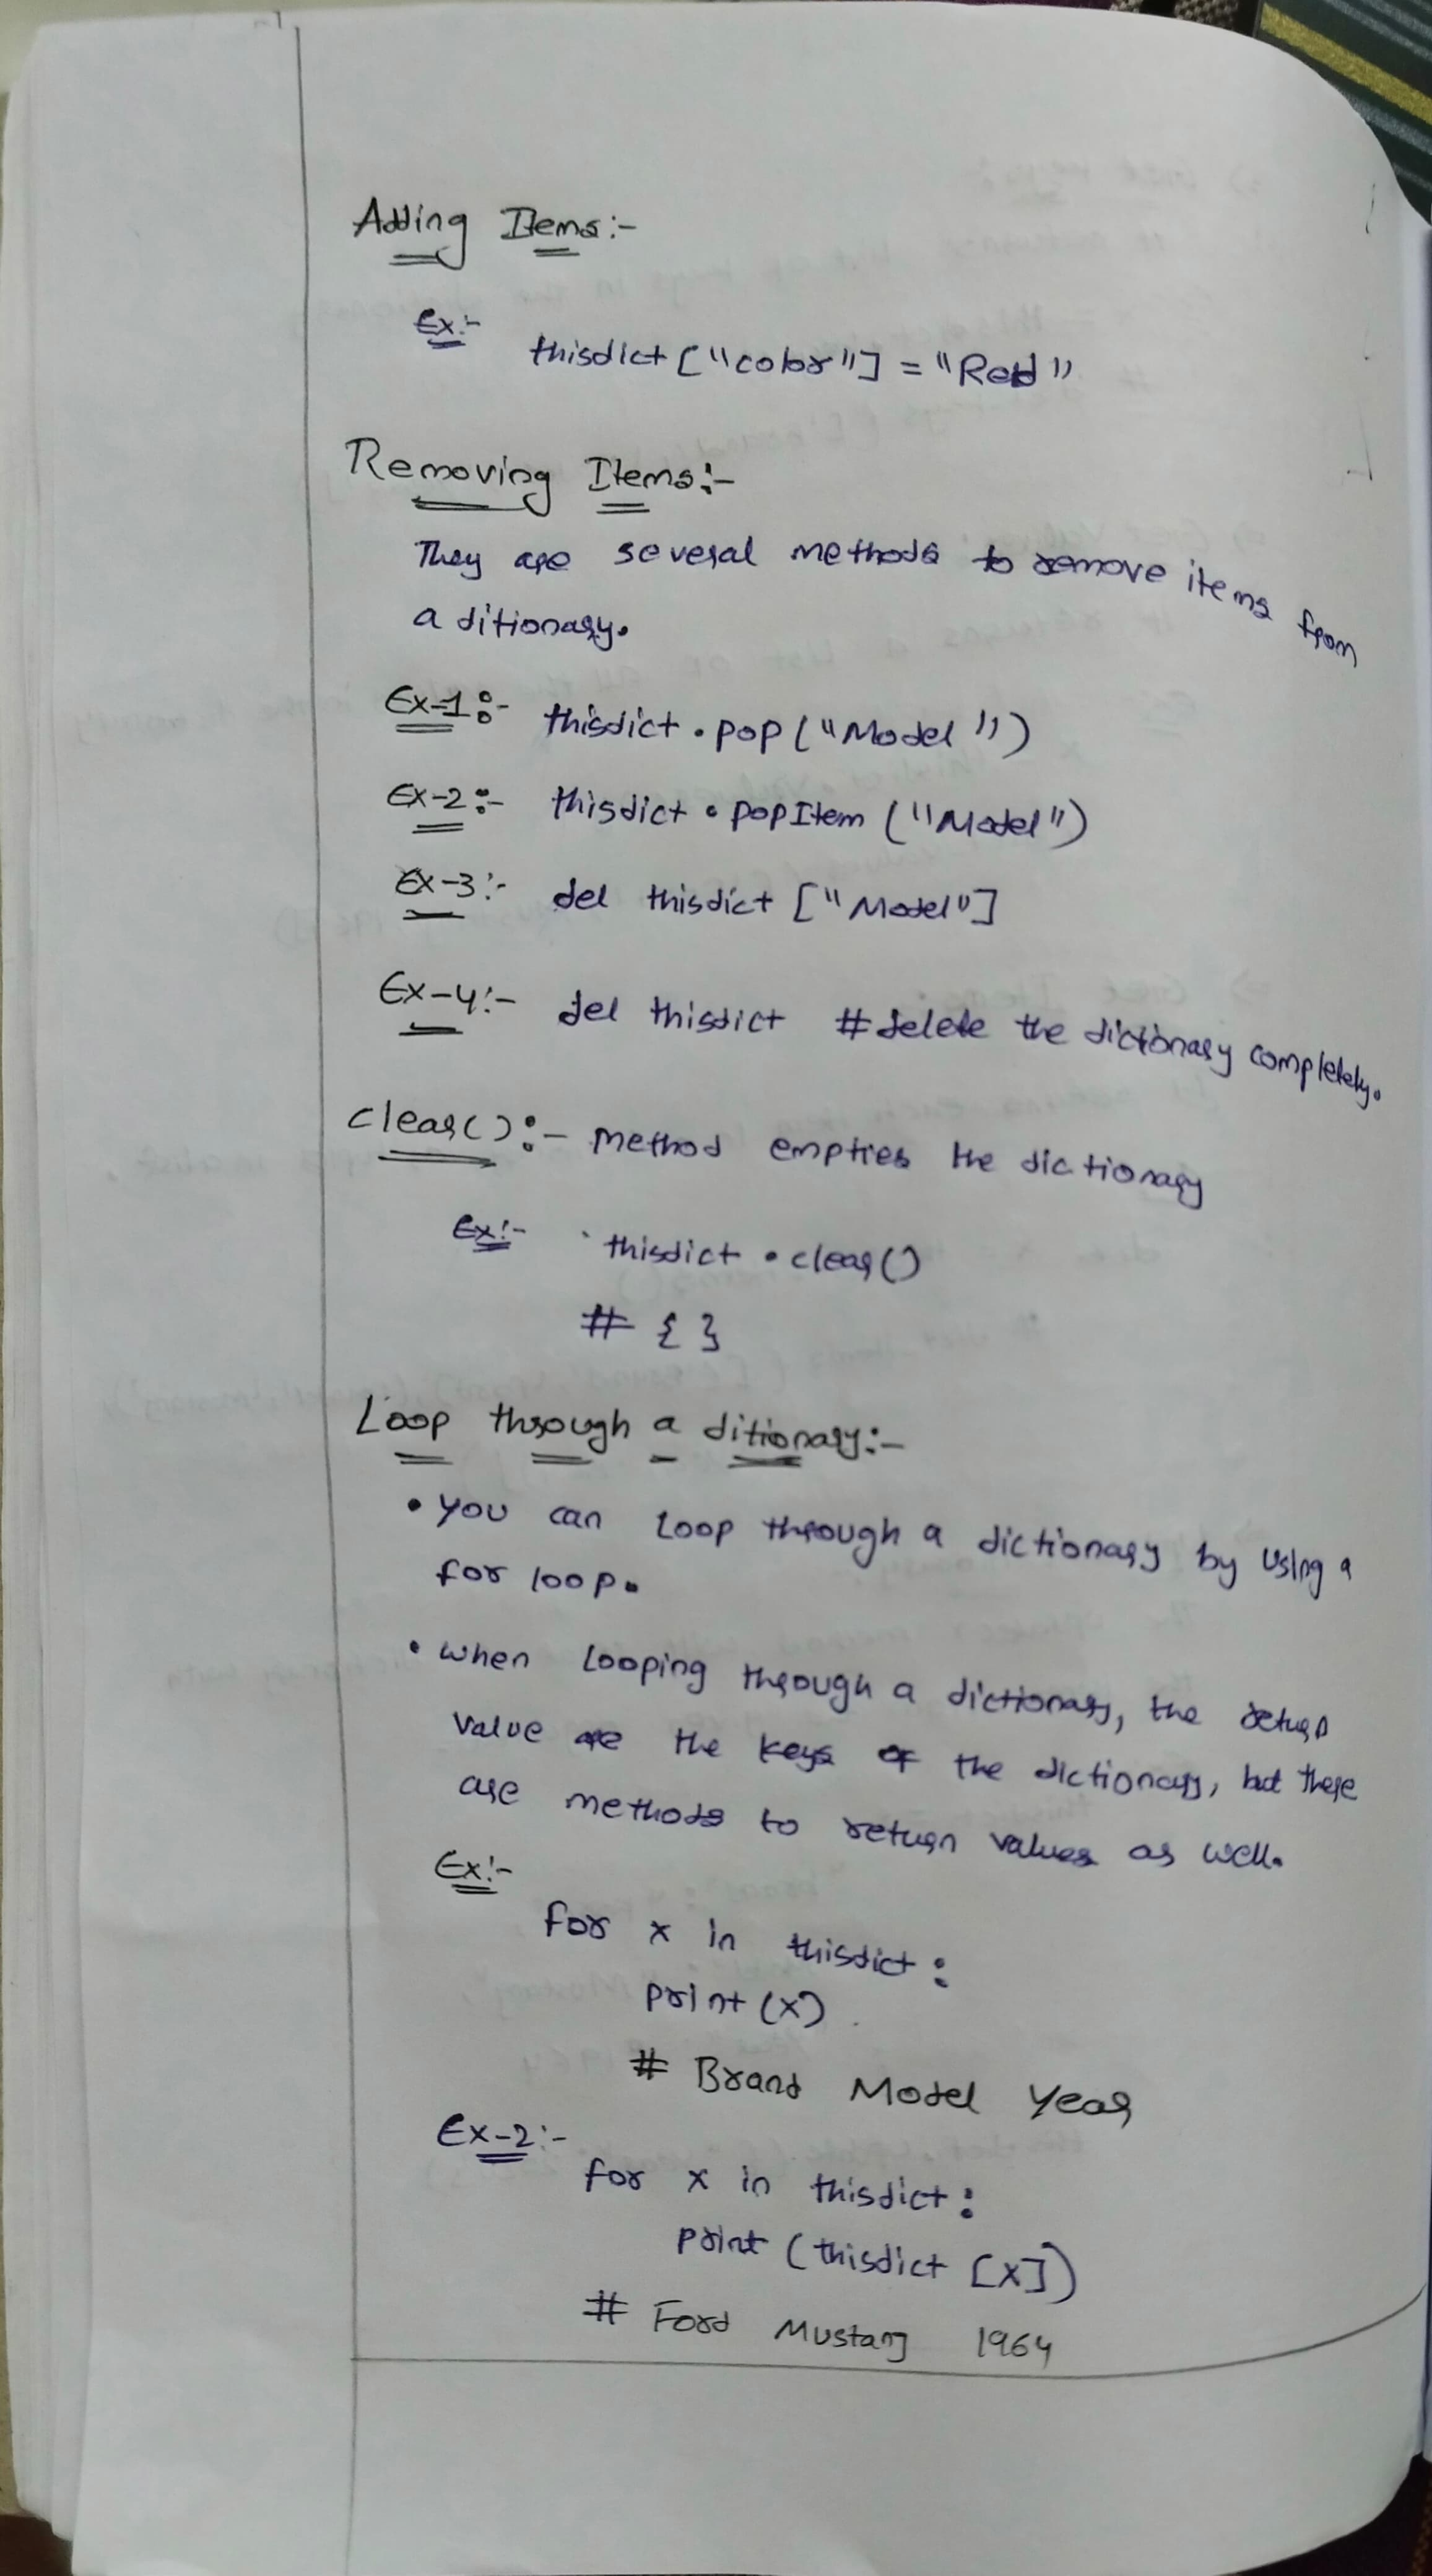 Adding Items:-
Ex:- thisdict ["color"] = "Red"
Removing Items:-
They are several methods to remove items from
a ditionary.
Ex-1:- thisdict . pop ("Model")
Ex-2:- thisdict . popItem ("Model")
Ex-3:- del thisdict ["Model"]
Ex-4:- del thisdict # delete the dictionary completely.
clear():- Method empties the dictionary
Ex:- thisdict . clear()
# { }
Loop through a ditionary:-
• You can Loop through a dictionary by Using a
for loop.
• When Looping through a dictionary, the return
value are the keys of the dictionary, but there
are methods to return values as well.
Ex:-
for x in thisdict :
print (x)
# Brand Model Year
Ex-2:-
for x in thisdict :
print (thisdict [x])
# Ford Mustang 1964